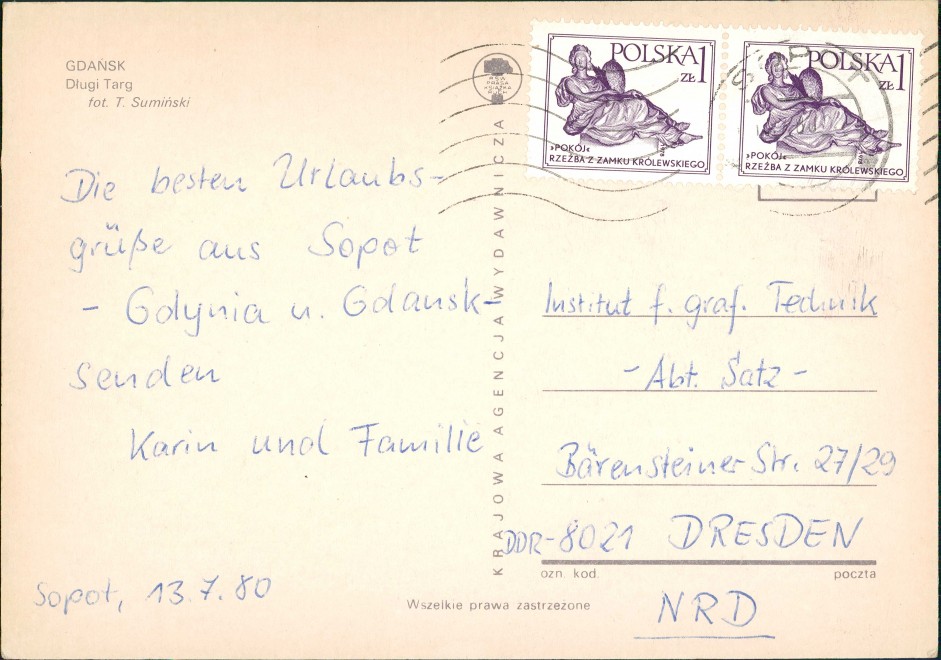 GDAŃSK
Długi Targ
fot. T. Sumiński
POLSKA 1
ZŁ
»POKÓJ«
RZEŹBA Z ZAMKU KRÓLEWSKIEGO
POLSKA 1
ZŁ
»POKÓJ«
RZEŹBA Z ZAMKU KRÓLEWSKIEGO
Die besten Urlaubs-
grüße aus Sopot
- Gdynia u. Gdansk-
senden
Karin und Familie
Sopot, 13.7.80
KRAJOWA AGENCJA WYDAWNICZA
RSW
PRASA
KSIĄŻKA
RUCH
Institut f. graf. Technik
- Abt. Satz -
Bärensteiner Str. 27/29
DDR-8021 DRESDEN
ozn. kod. poczta
NRD
Wszelkie prawa zastrzeżone